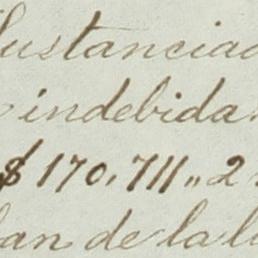 sustanciad
indebida
$ 170,711,, 2
lan de la l